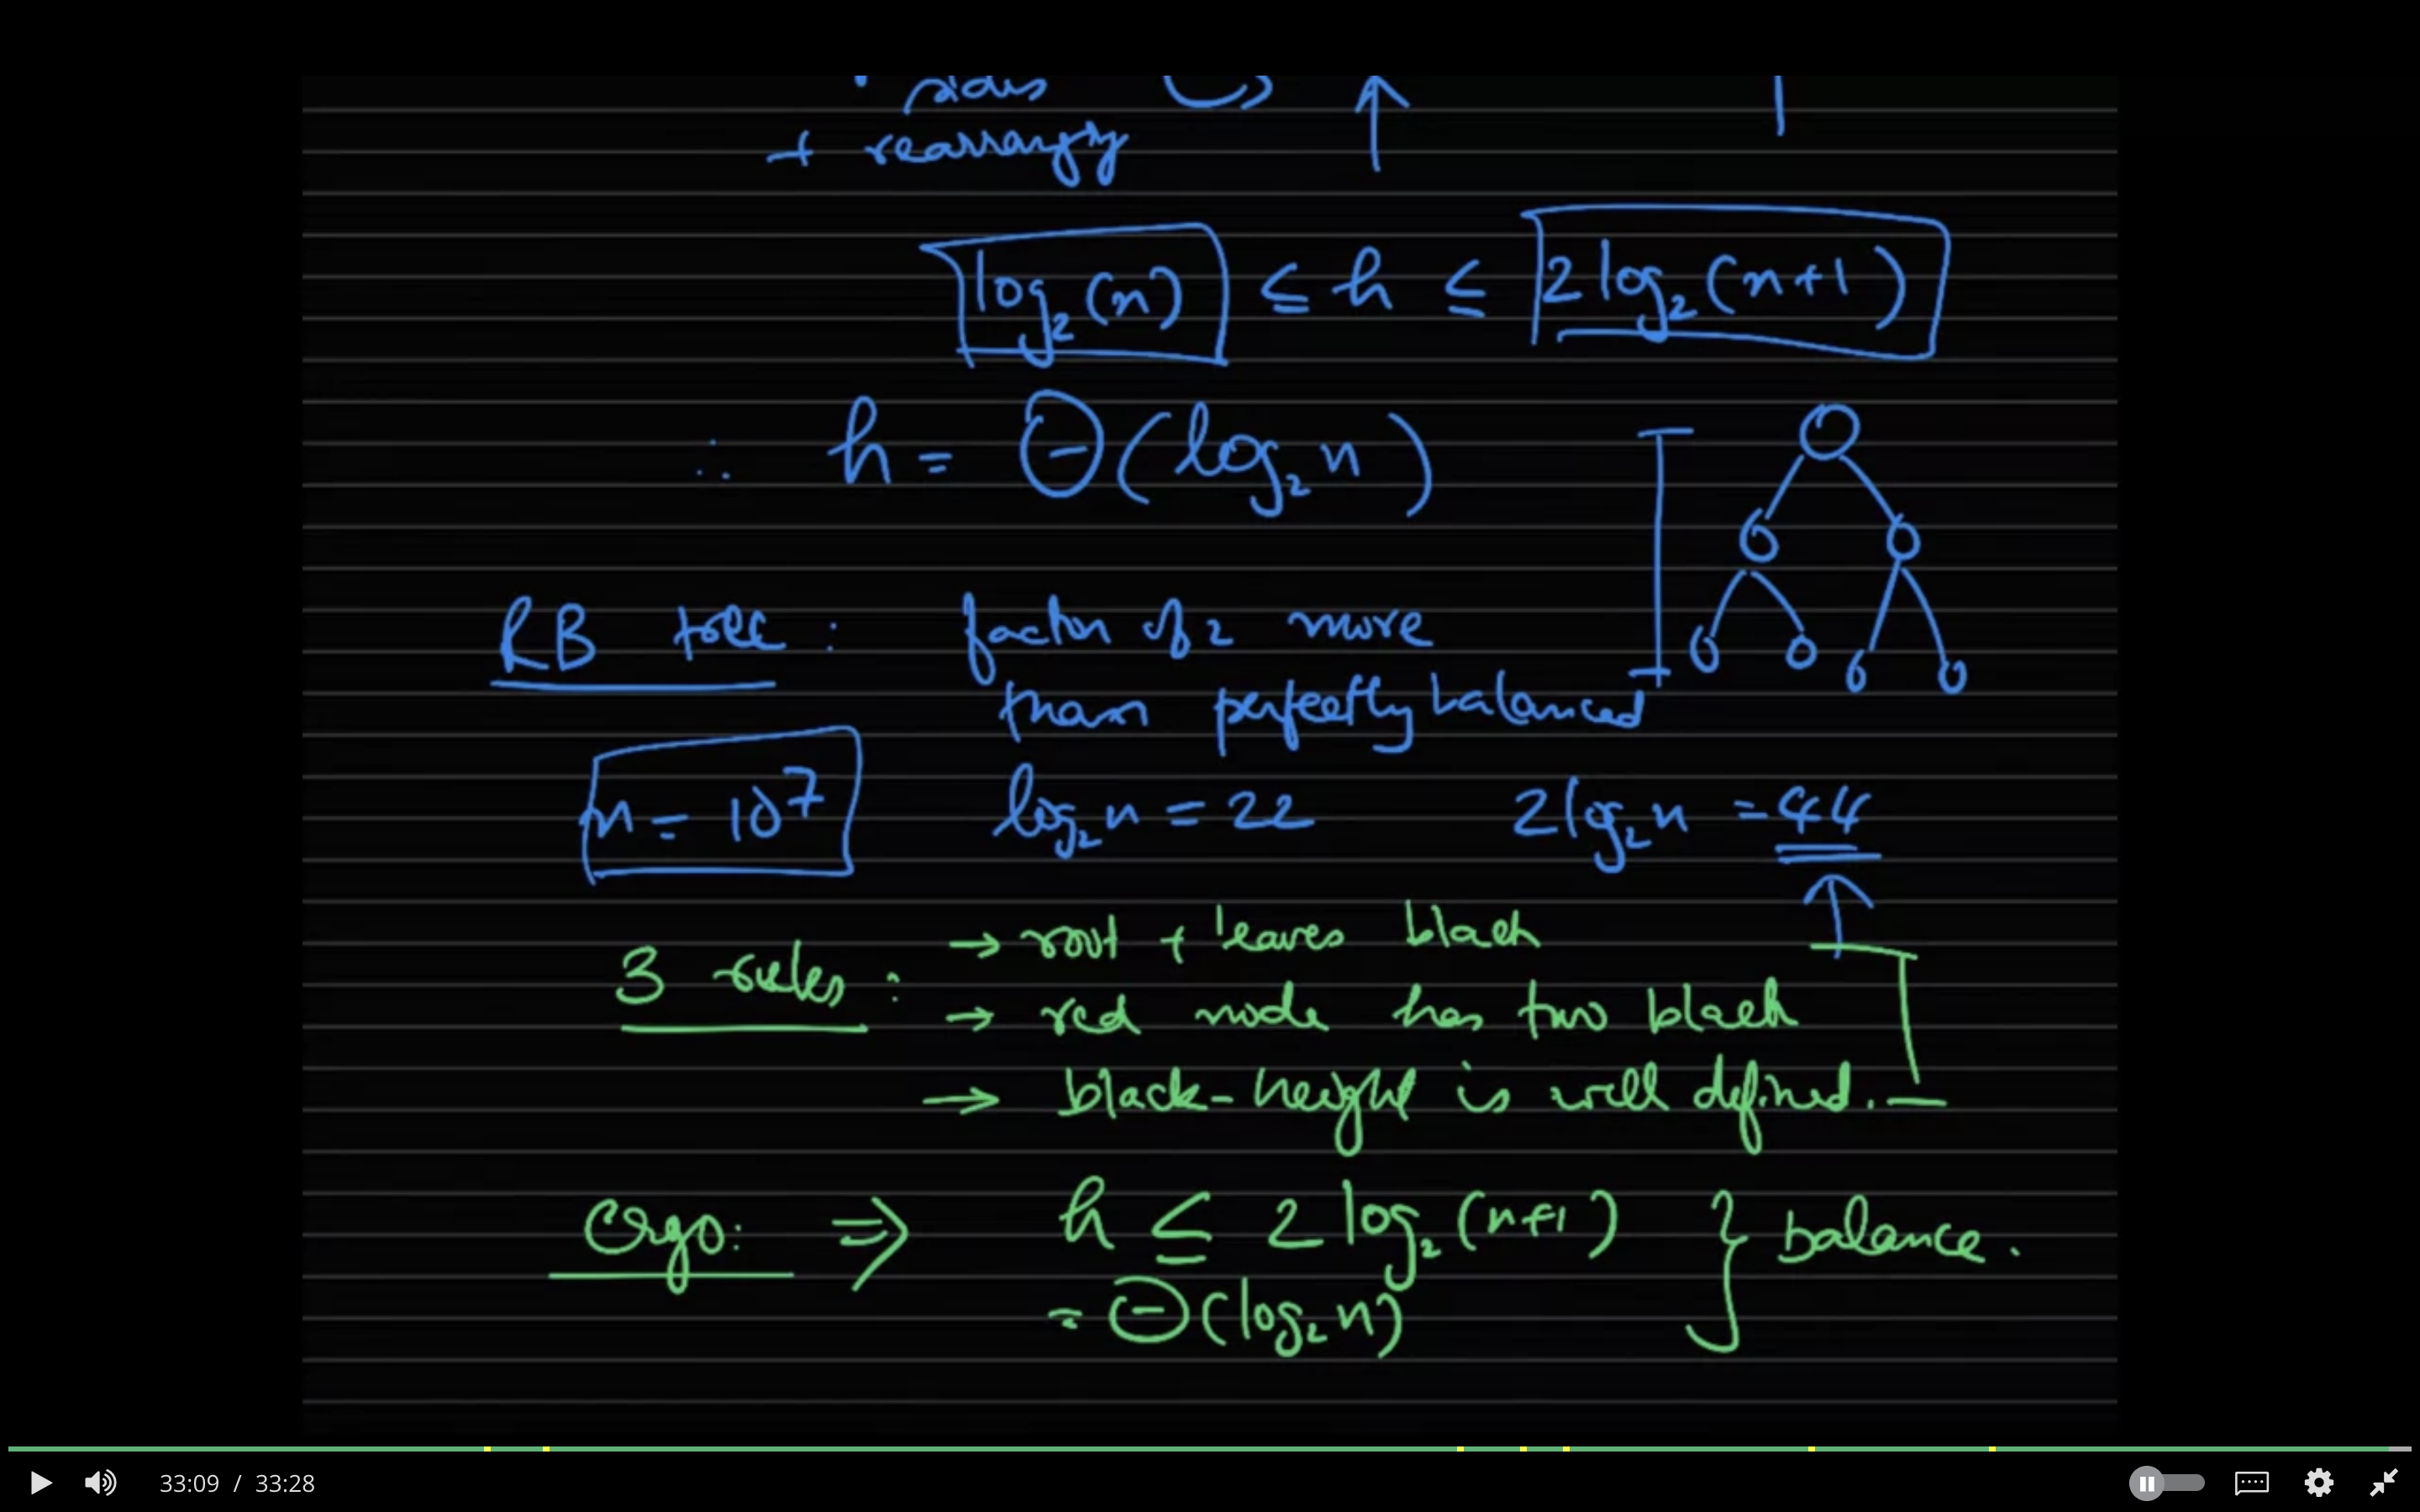 sides
+ rearranging
log₂(n) ≤ h ≤ 2log₂(n+1)
∴ h = Θ(log₂n)
RB tree: factor of 2 more
than perfectly balanced
n = 10⁷ log₂n = 22 2log₂n = 44
3 rules: → root + leaves black
→ red node has two black
→ black-height is well defined.
Ergo: ⇒ h ≤ 2log₂(n+1) } balance.
= Θ(log₂n)
33:09 / 33:28